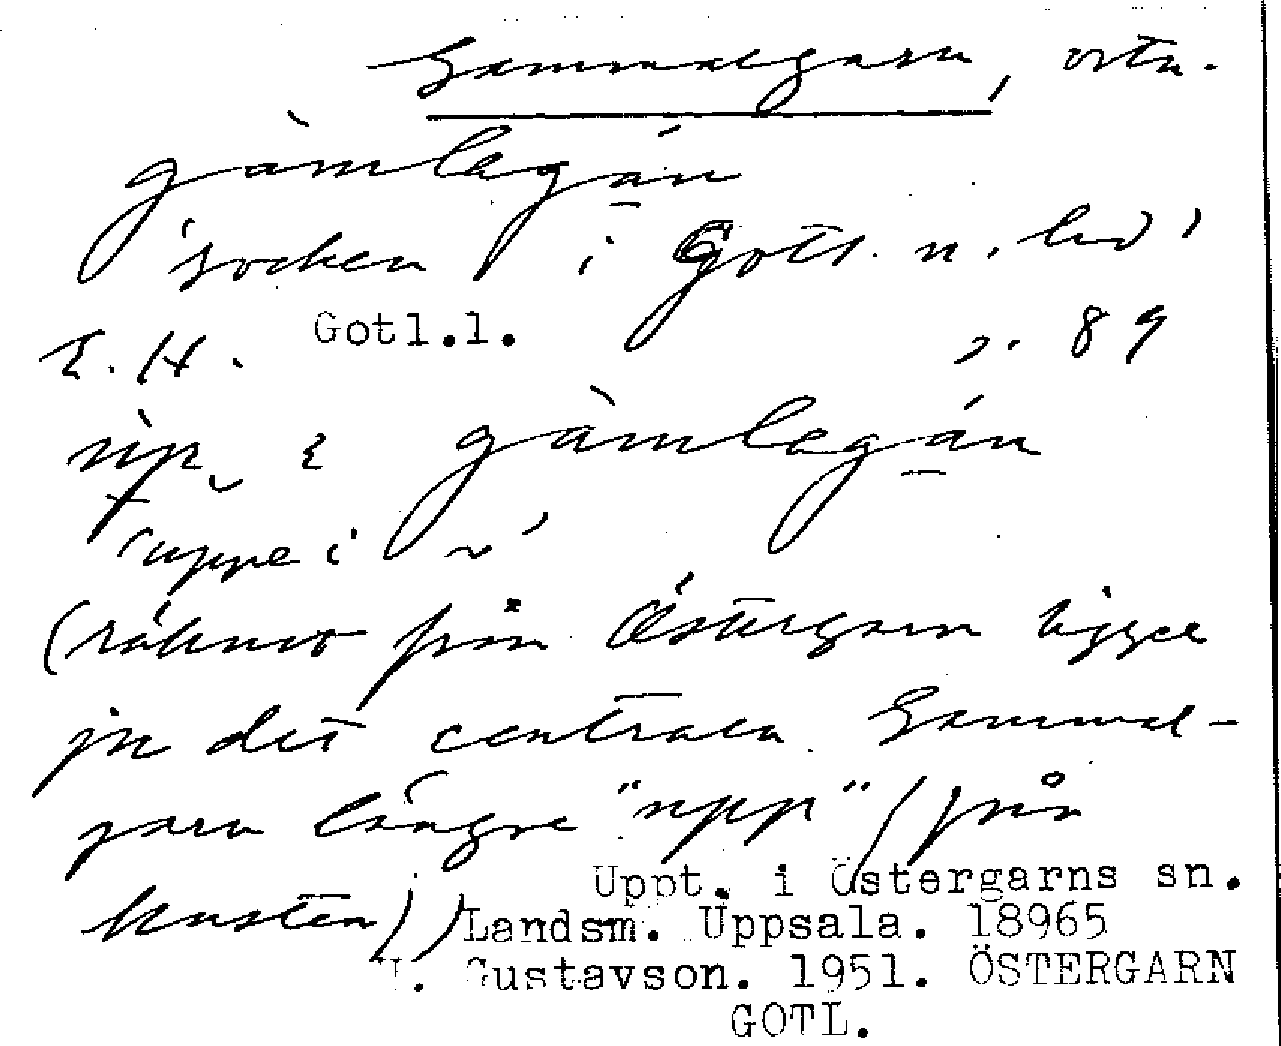 Gammalgarn, ortn.
gàmlagán
'socken i Gotl. n. hd'
E.H. Gotl.l. s. 89
úp i gàmlagán
'uppe i ~'
(räknat från Östergarn ligger
ju det centrala Gammal-
garn längre "upp" (från
kusten))
Uppt. i Östergarns sn.
Landsm. Uppsala. 18965
H. Gustavson. 1951. ÖSTERGARN
GOTL.